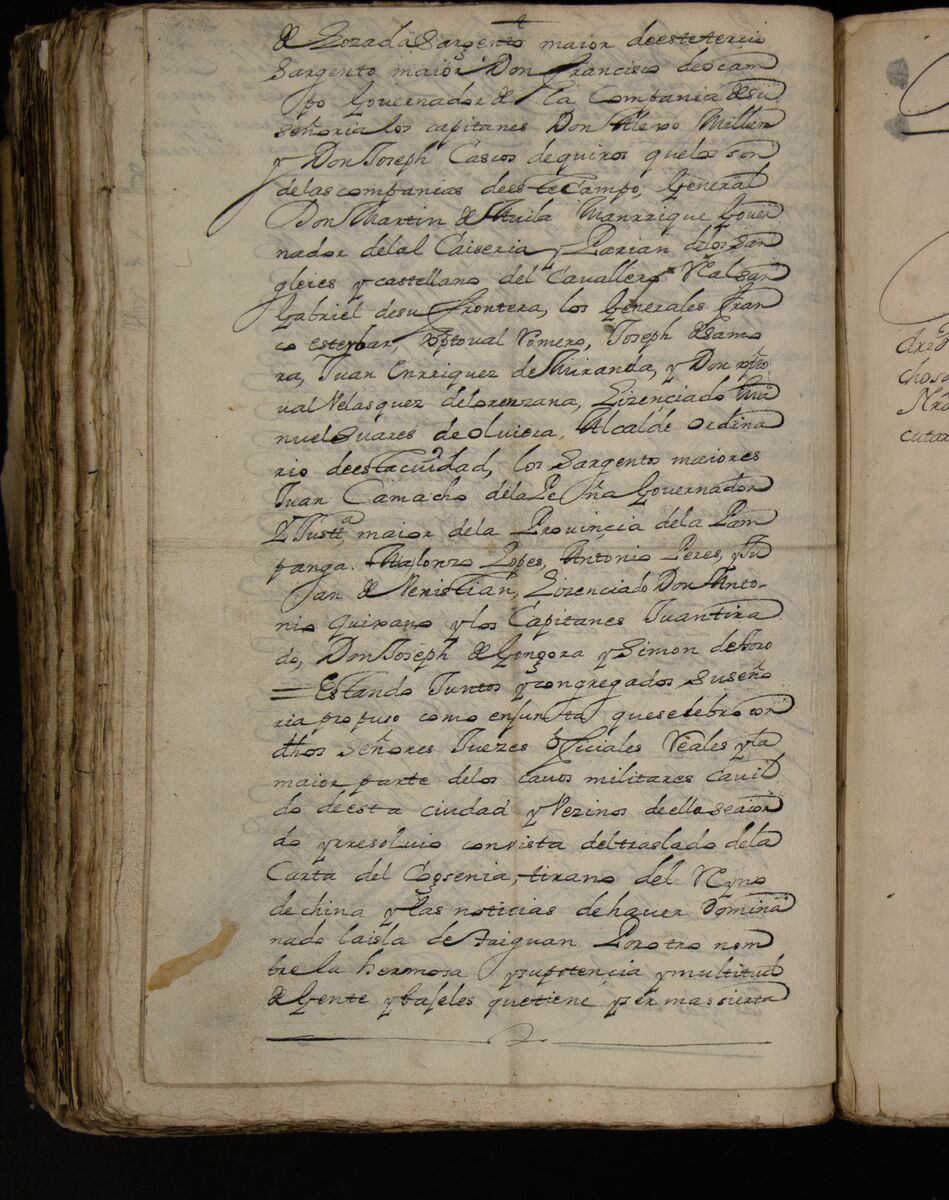 de Lozada Sargento maior de este tercio
Sargento maior Don Francisco de ocam
po Governador de la Compania de su
señoria los capitanes Don Alexo Millan
y Don Joseph Cascos de quiros que lo son
de las companias de este Campo, General
Don Martin de Auila Manrrique Gouer
nador del al Caiseria y Parian de los san
gleies y castellano del Cavallero Real san
Gabriel de su frontera, los Generales fran
co esteybar, xptoual Romero, Joseph de samo
ra, Juan Enrriquez de Miranda, y Don xpto
ual Velasquez de lorenzana, Lizenciado Ma
nuel suares de oliuera, Alcalde ordina
rio de esta ciudad, los sargentos maiores
Juan Camacho de la Peña Governador
y Justa maior de la Provincia de la Pam
panga. Alonzo Lopes, Antonio Peres, y Ju
an de Veristian, Lizenciado Don Anto
nio quixano y los Capitanes Juan tira
do, Don Joseph de Gongora y Simon de toro
= Estando Juntos y congregados su seño
ria propuso como en junta que se lebro con
dhos señores Juezes ofiçiales Reales y la
maior parte de los cauos militares Cauil
do de esta ciudad y Vezinos de ella se acor
do y resoluio con vista del traslado de la
Carta del Cogsenia, tirano del Reyno
de china y las noticias de hauer Domina
nado la isla de Paiguan Por otro nom
bre la hermosa y su potencia y multitud
de Gente y bajeles que tiene y ser mas sierta